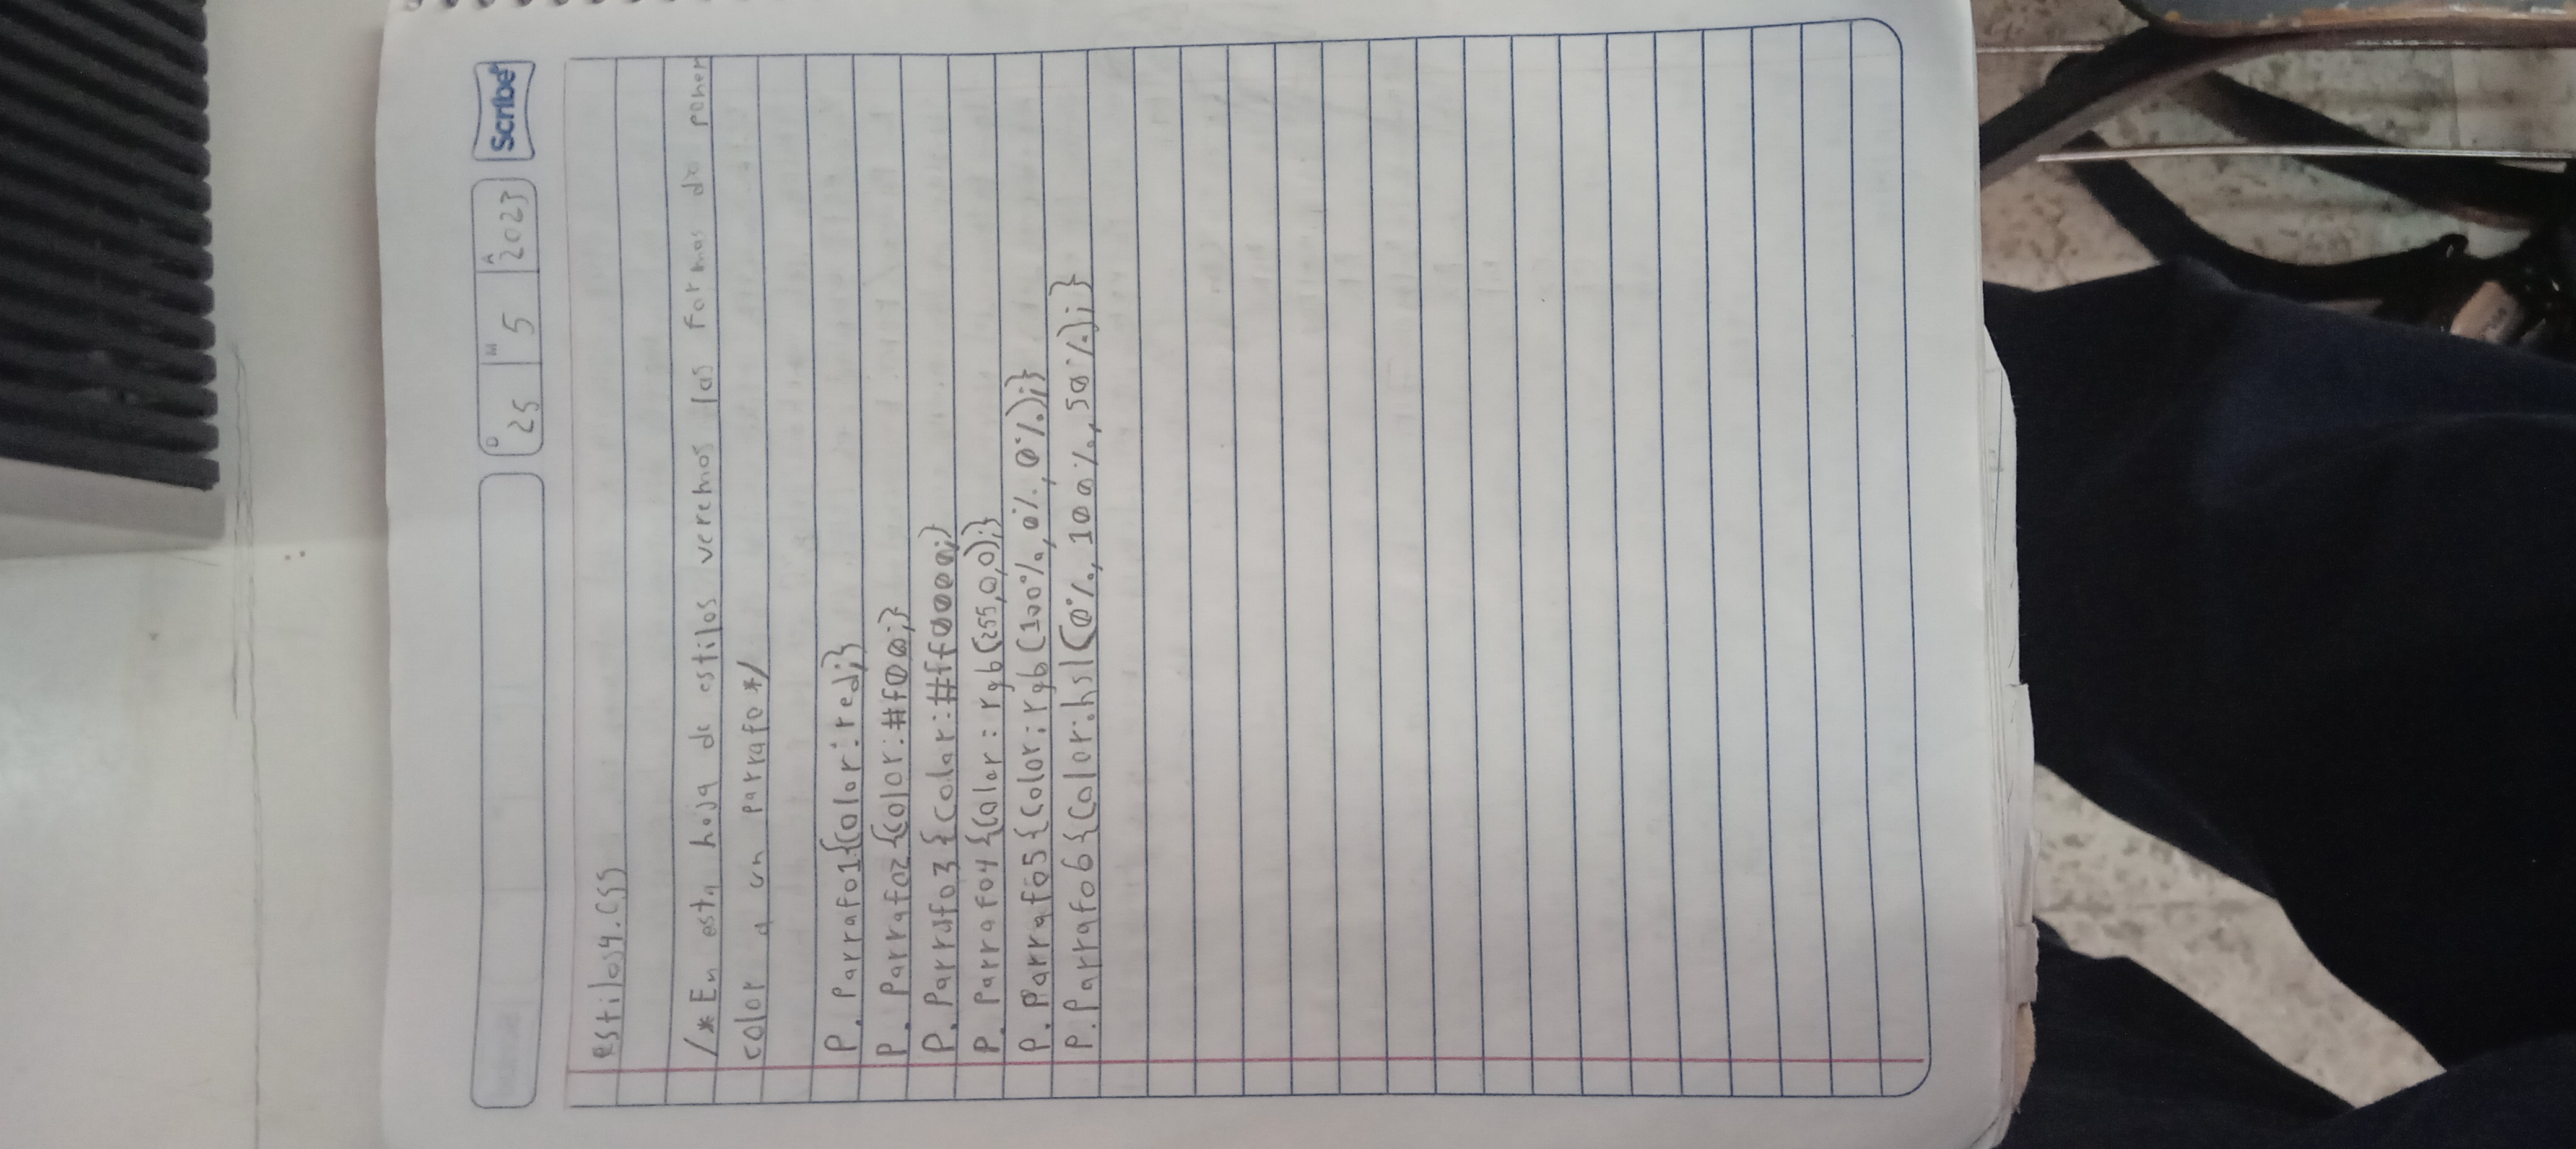 D 25 M 5 A 2023 Scribe®
estilos4.css
/* En esta hoja de estilos veremos las formas de poner
color a un parrafo */
P. Parrafo1{Color:red;}
P. Parrafo2{Color:#f00;}
P. Parrafo3{Color:#ff0000;}
P. Parrafo4{Color: rgb(255,0,0);}
P. Parrafo5{Color: rgb(100%,0%,0%);}
P. Parrafo6{Color:hsl(0%,100%,50%);}